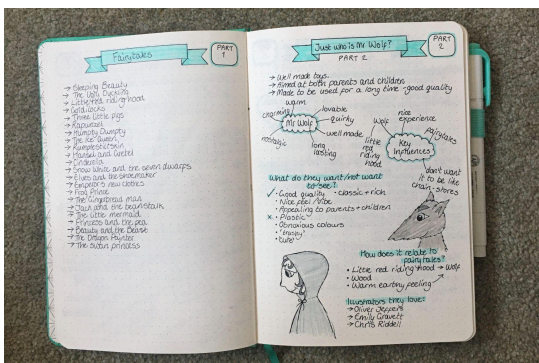 Fairytales
PART
1
→ Sleeping Beauty
→ The Ugly Duckling
→ Little red riding hood
→ Goldilocks
→ Three little pigs
→ Rapunzel
→ Humpty Dumpty
→ The Ice Queen
→ Rumplestiltskin
→ Hansel and Gretel
→ Cinderella
→ Snow White and the seven dwarfs
→ Elves and the shoemaker
→ Emperor's new clothes
→ Frog Prince
→ The Gingerbread man
→ Jack and the beanstalk
→ The little mermaid
→ Princess and the pea
→ Beauty and the Beast
→ The Dragon Painter
→ The swan princess
Just who is Mr Wolf?
PART 2
PART
2
→ Well made toys
→ Aimed at both parents and children
→ Made to be used for a long time - good quality
Mr Wolf
charming
warm
lovable
quirky
well made
long
lasting
nostalgic
Key
Influences
Wolf
nice
experience
fairytales
little
red
riding
hood
don't want
it to be like
chain-stores
What do they want/not want
to see?
✓ • Good quality • classic + rich
• Nice feel/vibe
• Appealing to parents + children
x • Plastic
• Obnoxious colours
• 'trashy'
• 'cute'
How does it relate to
fairytales?
• Little red riding hood → Wolf
• Wood
• Warm earthy feeling
Illustrators they love:
→ Oliver Jeffers
→ Emily Gravett
→ Chris Riddell